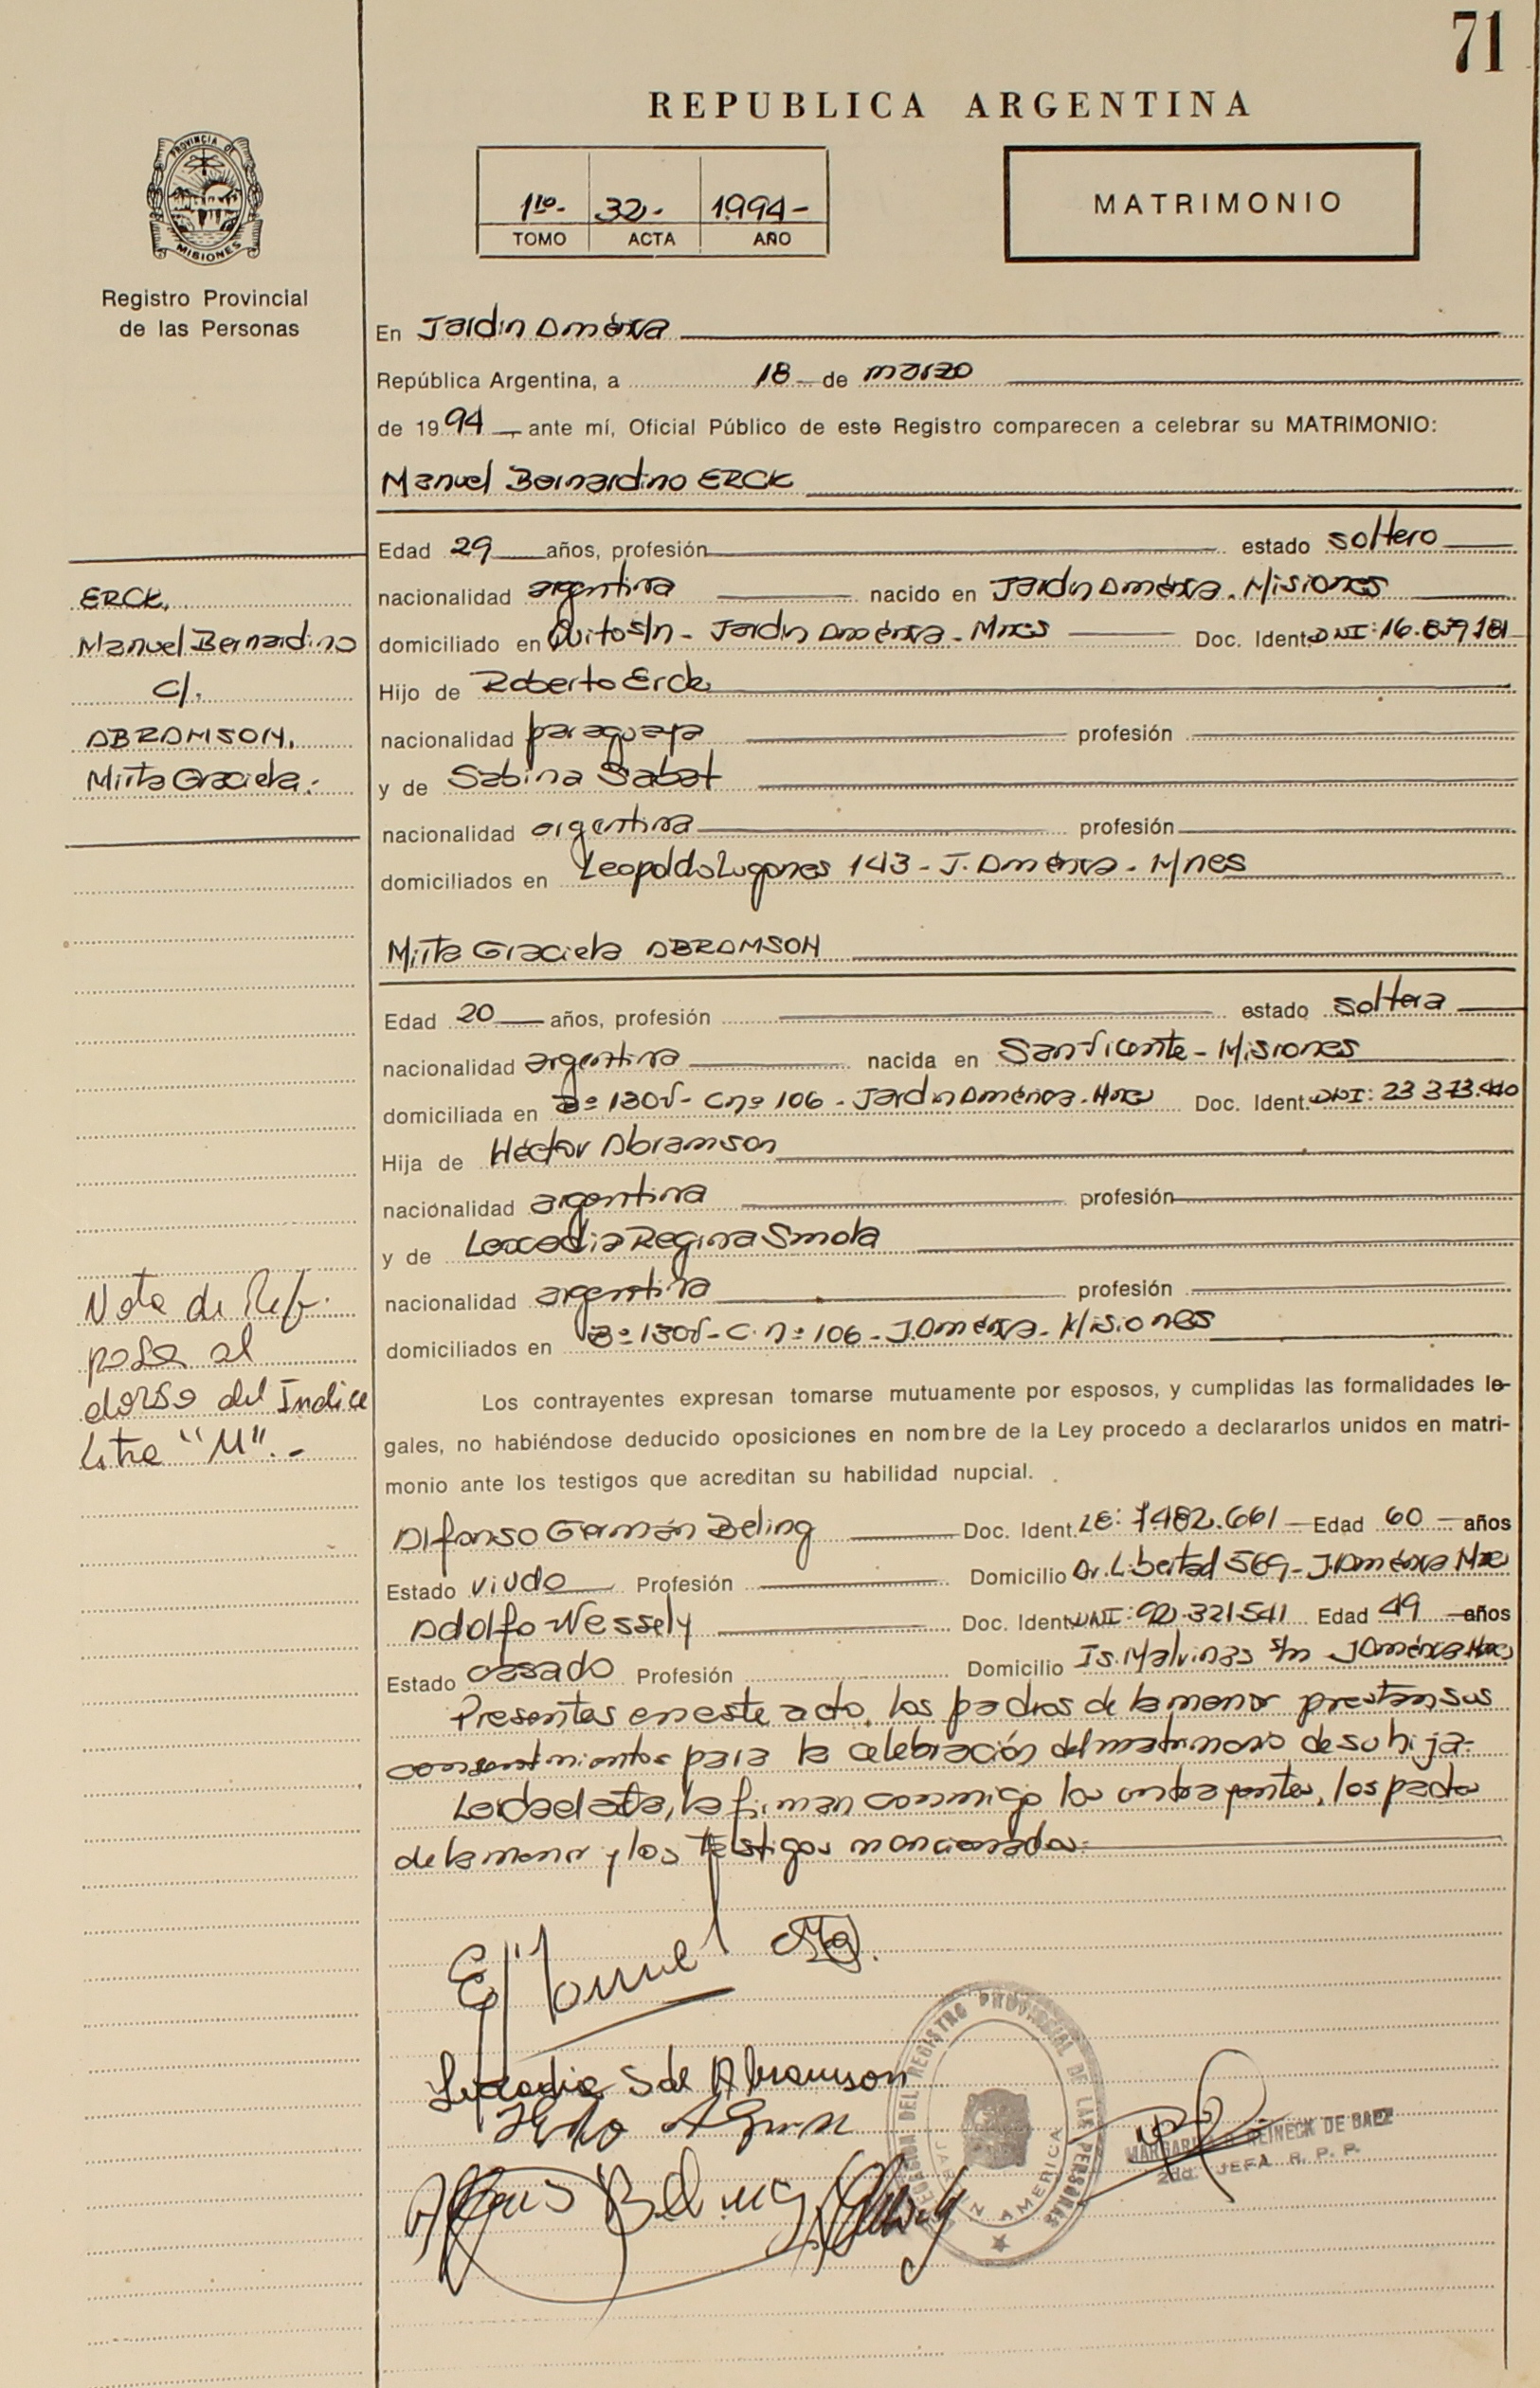 71
REPUBLICA ARGENTINA
1ro.- 32.- 1994-
TOMO ACTA AÑO
MATRIMONIO
PROVINCIA DE
MISIONES
Registro Provincial
de las Personas
En Jardín América
República Argentina, a 18 de marzo
de 1994, ante mí, Oficial Público de este Registro comparecen a celebrar su MATRIMONIO:
Manuel Bernardino ERCK
Edad 29 años, profesión estado soltero
nacionalidad argentina nacido en Jardín América. Misiones
domiciliado en Quito s/n - Jardín América - Mnes Doc. Ident. DNI: 16.879.181
Hijo de Roberto Erck
nacionalidad paraguaya profesión
y de Sabina Sabat
nacionalidad argentina profesión
domiciliados en Leopoldo Lugones 143 - J. América - Mnes
ERCK,
Manuel Bernardino
c/.
ABRAMSON,
Mirta Graciela.-
Mirta Graciela ABRAMSON
Edad 20 años, profesión estado soltera
nacionalidad argentina nacida en San Vicente - Misiones
domiciliada en Bº 130v - C nº 106 - Jardín América - Mnes Doc. Ident. DNI: 23.373.440
Hija de Héctor Abramson
nacionalidad argentina profesión
y de Leocadia Regina Smola
nacionalidad argentina profesión
domiciliados en Bº 130v - C. nº 106 - J. América - Misiones
Nota de Ref.
pasa al
dorso del Indice
letra "M".-
Los contrayentes expresan tomarse mutuamente por esposos, y cumplidas las formalidades le-
gales, no habiéndose deducido oposiciones en nombre de la Ley procedo a declararlos unidos en matri-
monio ante los testigos que acreditan su habilidad nupcial.
Alfonso Germán Beling Doc. Ident. LE: 7.482.661 Edad 60 años
Estado viudo Profesión Domicilio Av. Libertad 569 - J. América Mnes
Adolfo Wessely Doc. Ident. DNI: 92.321.541 Edad 49 años
Estado casado Profesión Domicilio Is. Malvinas s/n J América Mnes
Presentes en este acto, los padres de la menor prestan sus
consentimientos para la celebración del matrimonio de su hija.-
Leída el acta, la firman conmigo los contrayentes, los padres
de la menor y los testigos mencionados.-
Leocadia S de Abramson
DELEGACION DEL REGISTRO PROVINCIAL DE LAS PERSONAS
JARDIN AMERICA
MARGARITA REINECK DE BAEZ
2da. JEFA R. P. P.